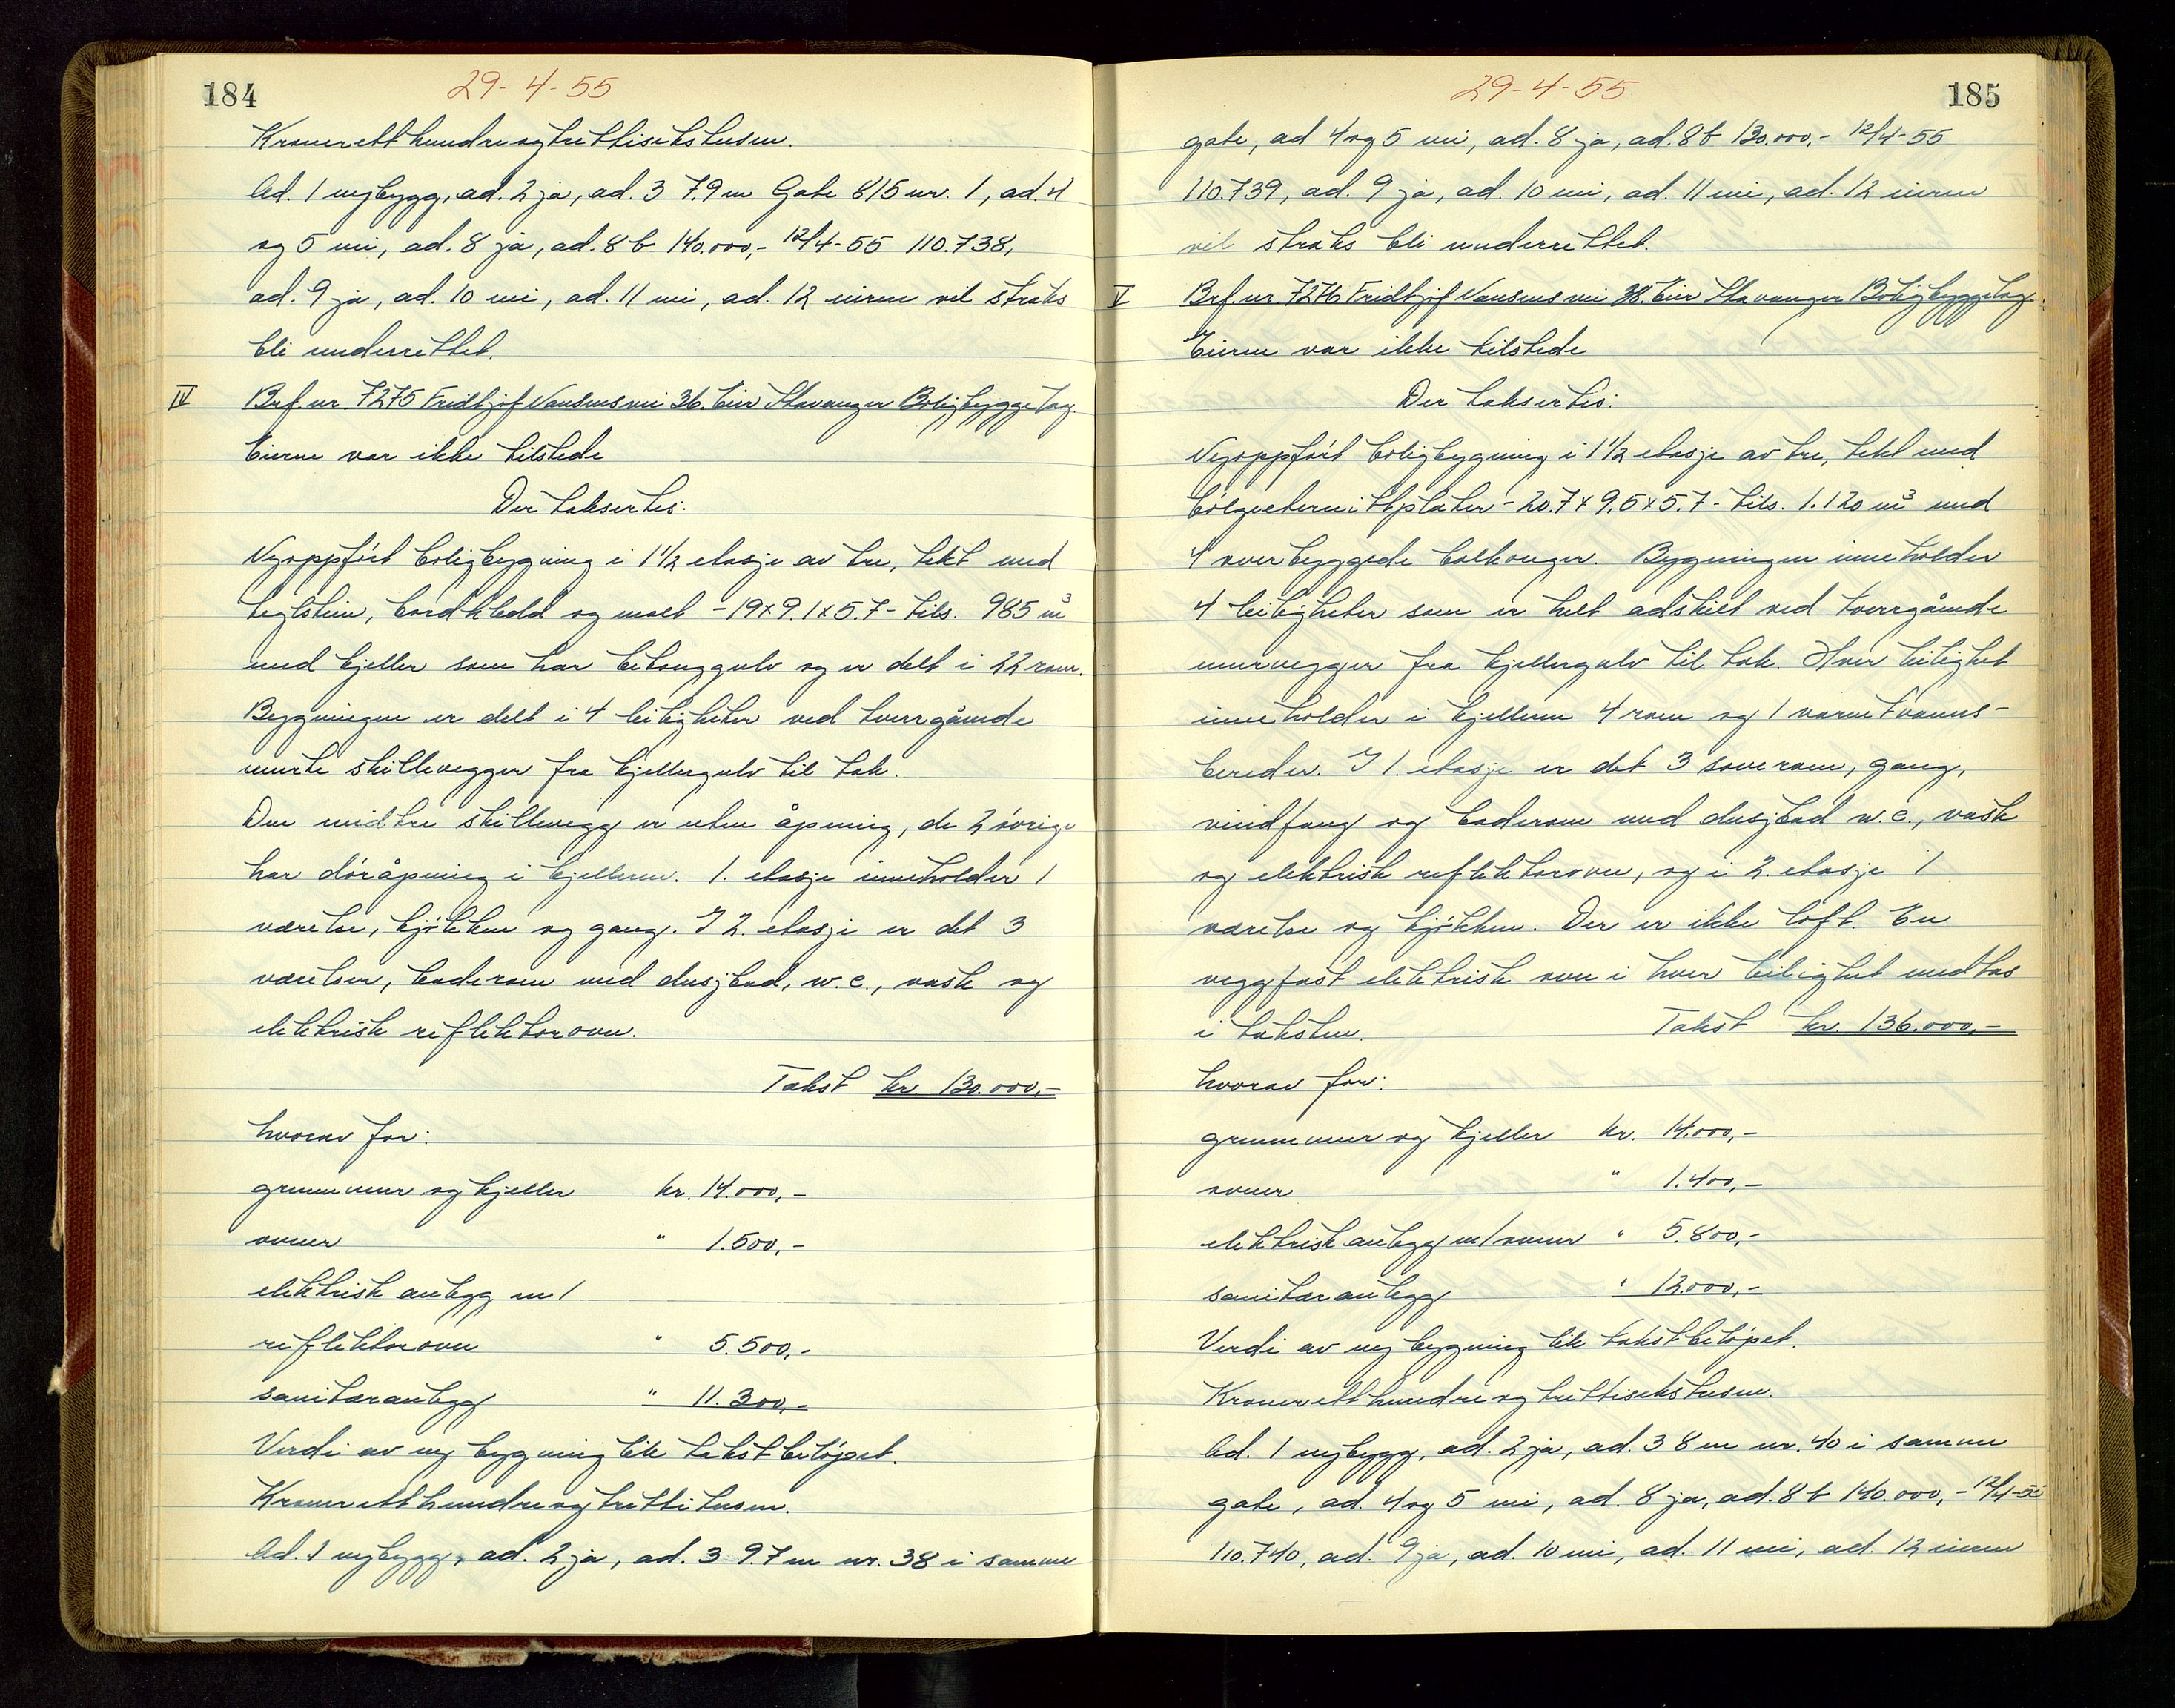 184
29-4-55
Kroner ett hundre og trettisekstusen.
Ad. 1 nybygg, ad. 2 ja, ad. 3 7.9 m Gate 815 nr. 1, ad. 4
og 5 nei, ad. 8 ja, ad. 8 b 140.000,- 12/4-55 110.738,
ad. 9 ja, ad. 10 nei, ad. 11 nei, ad. 12 eieren vil straks
bli underrettet.
IV Brf. nr 7275 Fridtjof Nansens vei 36. Eier Stavanger Boligbyggelag.
Eieren var ikke tilstede
Der taksertes:
Nyoppført boligbygning i 1 1/2 etasje av tre, tekt med
teglstein, bordkledd og malt - 19 x 9.1 x 5.7 - tils. 985 m³
med kjeller som har betonggulv og er delt i 22 rom.
Bygningen er delt i 4 leiligheter ved tverrgående
murte skillevegger fra kjellergulv til tak.
Den midtre skillevegg er uten åpning, de 2 øvrige
har døråpning i kjelleren. 1. etasje inneholder 1
værelse, kjøkken og gang. I 2. etasje er det 3
værelser, baderom med dusjbad, w.c., vask og
elektrisk reflektorovn.
Takst kr. 130.000,-
hvorav for:
grunnmur og kjeller kr. 14.000,-
ovner " 1.500,-
elektrisk anlegg m/
reflektorovn " 5.500,-
sanitæranlegg " 11.300,-
Verdi av ny bygning lik takstbeløpet.
Kroner ett hundre og trettitusen.
Ad. 1 nybygg, ad. 2 ja, ad. 3 9.7 m nr. 38 i samme
185
29-4-55
gate, ad 4 og 5 nei, ad. 8 ja, ad. 8 b 130.000,- 12/4-55
110.739, ad. 9 ja, ad. 10 nei, ad. 11 nei, ad. 12 eieren
vil straks bli underrettet.
V Brf. nr 7276 Fridtjof Nansens vei 38. Eier Stavanger Boligbyggelag.
Eieren var ikke tilstede
Der taksertes:
Nyoppført boligbygning i 1 1/2 etasje av tre, tekt med
bølgeeternittplater - 20.7 x 9.5 x 5.7 - tils. 1.120 m³ med
4 overbyggede balkonger. Bygningen inneholder
4 leiligheter som er helt adskilt ved tverrgående
murvegger fra kjellergulv til tak. Hver leilighet
inneholder i kjelleren 4 rom og 1 varmtvanns-
bereder. I 1. etasje er det 3 soverom, gang,
vindfang og baderom med dusjbad w.c., vask
og elektrisk reflektorovn, og i 2. etasje 1
værelse og kjøkken. Der er ikke loft. En
veggfast elektrisk ovn i hver leilighet medtas
i taksten. Takst kr. 136.000,-
hvorav for:
grunnmur og kjeller kr. 14.000,-
ovner " 1.400,-
elektrisk anlegg m/ovner " 5.800,-
sanitæranlegg " 12.000,-
Verdi av ny bygning lik takstbeløpet.
Kroner ett hundre og trettisekstusen.
Ad. 1 nybygg, ad. 2 ja, ad. 3 8 m nr. 40 i samme
gate, ad. 4 og 5 nei, ad. 8 ja, ad. 8 b 140.000,- 12/4-55
110.740, ad. 9 ja, ad. 10 nei, ad. 11 nei, ad. 12 eieren